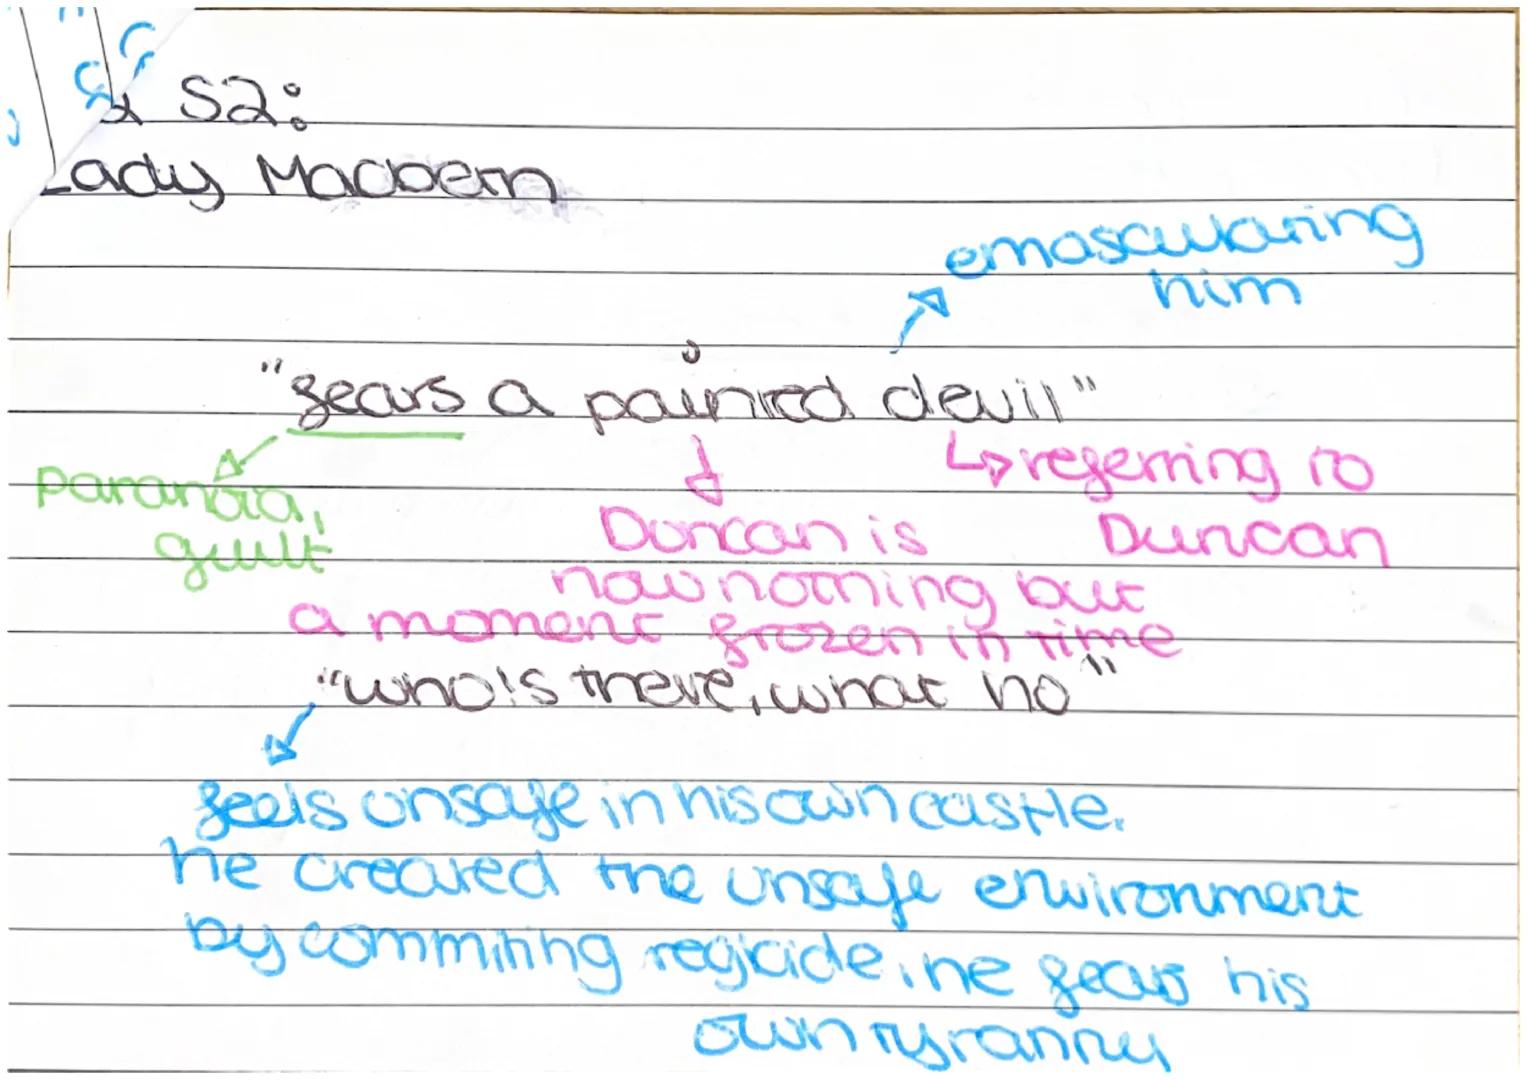 S2:
Lady Macbeth
emasculating
him
"fears a painted devil"
paranoia,
guilt
↳ referring to
Duncan
Duncan is
now nothing but
a moment frozen in time
"who's there, what ho"
feels unsafe in his own castle.
he created the unsafe environment
by commiting regicide, he fears his
own tyranny